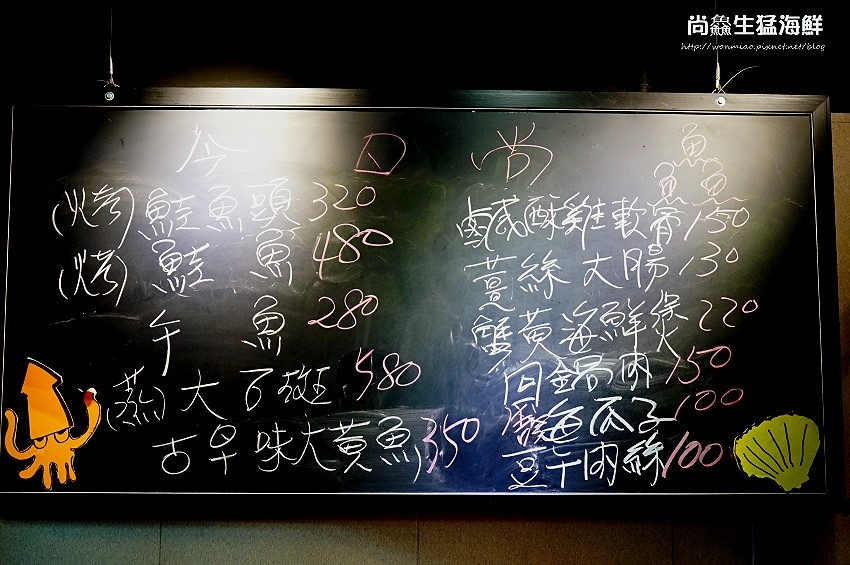 尚鱻生猛海鮮
http://wonmiao.pixnet.net/blog
今日尚鱻
(烤)鮭魚頭320
(烤)鮭魚480
午魚280
(蒸)大石斑580
古早味大黃魚350
鹹酥雞軟骨150
薑絲大腸130
蟹黃海鮮煲220
回鍋肉150
海瓜子100
豆干肉絲100